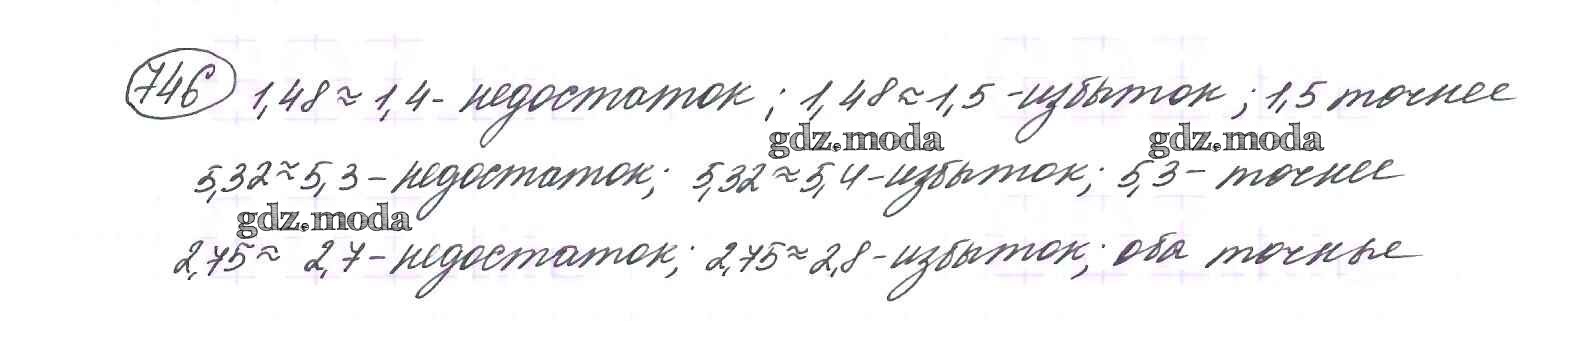 746 1,48 ≈ 1,4 - недостаток; 1,48 ≈ 1,5 - избыток; 1,5 точнее
gdz.moda gdz.moda
5,32 ≈ 5,3 - недостаток; 5,32 ≈ 5,4 - избыток; 5,3 - точнее
gdz.moda
2,75 ≈ 2,7 - недостаток; 2,75 ≈ 2,8 - избыток; оба точные